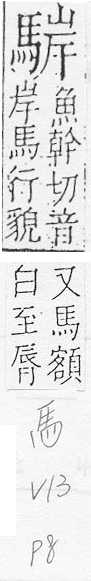 䮗
魚幹切音
岸馬行貌
又馬額
白至脣
馬
V13
P8